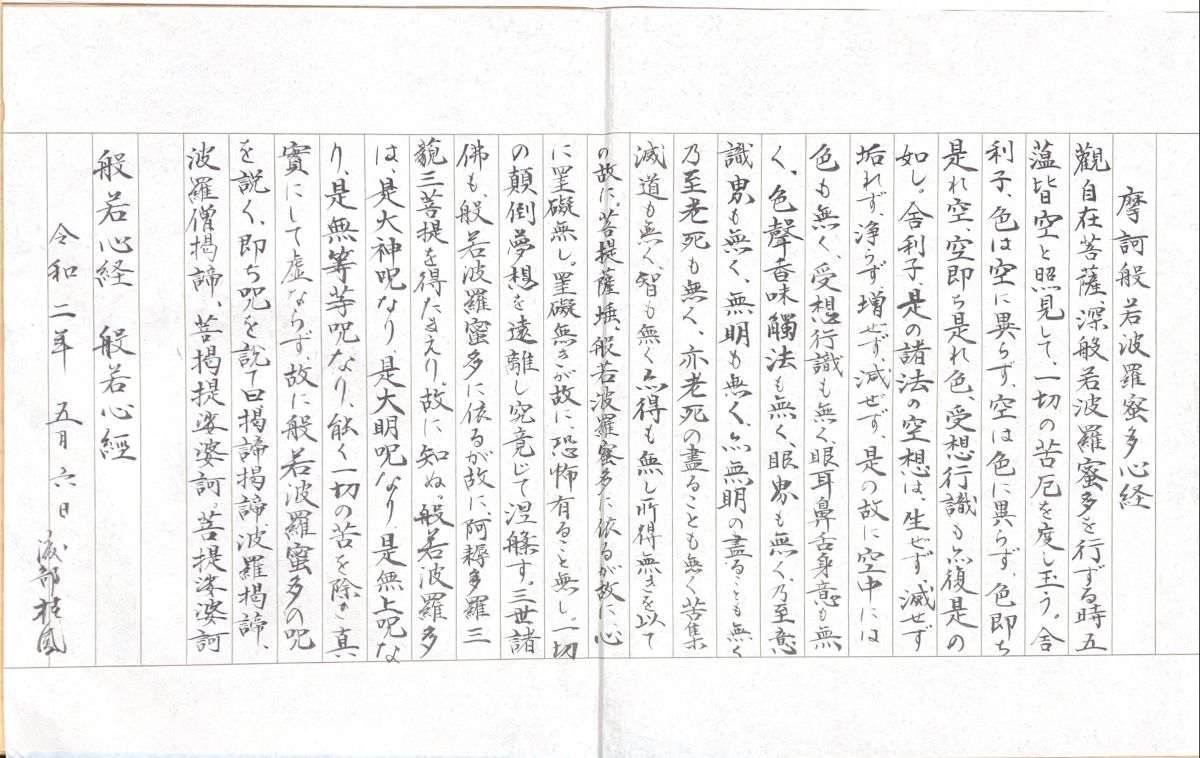 摩訶般若波羅蜜多心経
觀自在菩薩、深般若波羅蜜多を行ずる時五
薀皆空と照見して、一切の苦厄を度し玉う。舎
利子、色は空に異らず、空は色に異らず、色即ち
是れ空、空即ち是れ色、受想行識も亦復是の
如し。舎利子、是の諸法の空想は、生ぜず、滅せず
垢れず、浄らず増ぜず、減ぜず、是の故に空中には
色も無く、受想行識も無く、眼耳鼻舌身意も無
く、色聲香味觸法も無く、眼界も無く、乃至意
識界も無く、無明も無く、亦無明の盡ることも無く
乃至老死も無く、亦老死の盡ることも無く苦集
滅道も無く、智も無く亦得も無し所得無きを以て
の故に。菩提薩埵、般若波羅蜜多に依るが故に、心
に罣礙無し。罣礙無きが故に、恐怖有ること無し。一切
の顛倒夢想を遠離し究竟じて涅槃す。三世諸
佛も、般若波羅蜜多に依るが故に、阿耨多羅三
藐三菩提を得たまえり。故に知ぬ。般若波羅多
は、是大神呪なり、是大明呪なり、是無上呪な
り、是無等等呪なり、能く一切の苦を除き真
實にして虚ならず、故に般若波羅蜜多の呪
を説く、即ち呪を説て曰掲諦掲諦波羅掲諦、
波羅僧掲諦、菩掲提娑婆訶。菩提娑婆訶
般若心経　般若心經
令和二年　五月六日　渡部桂風